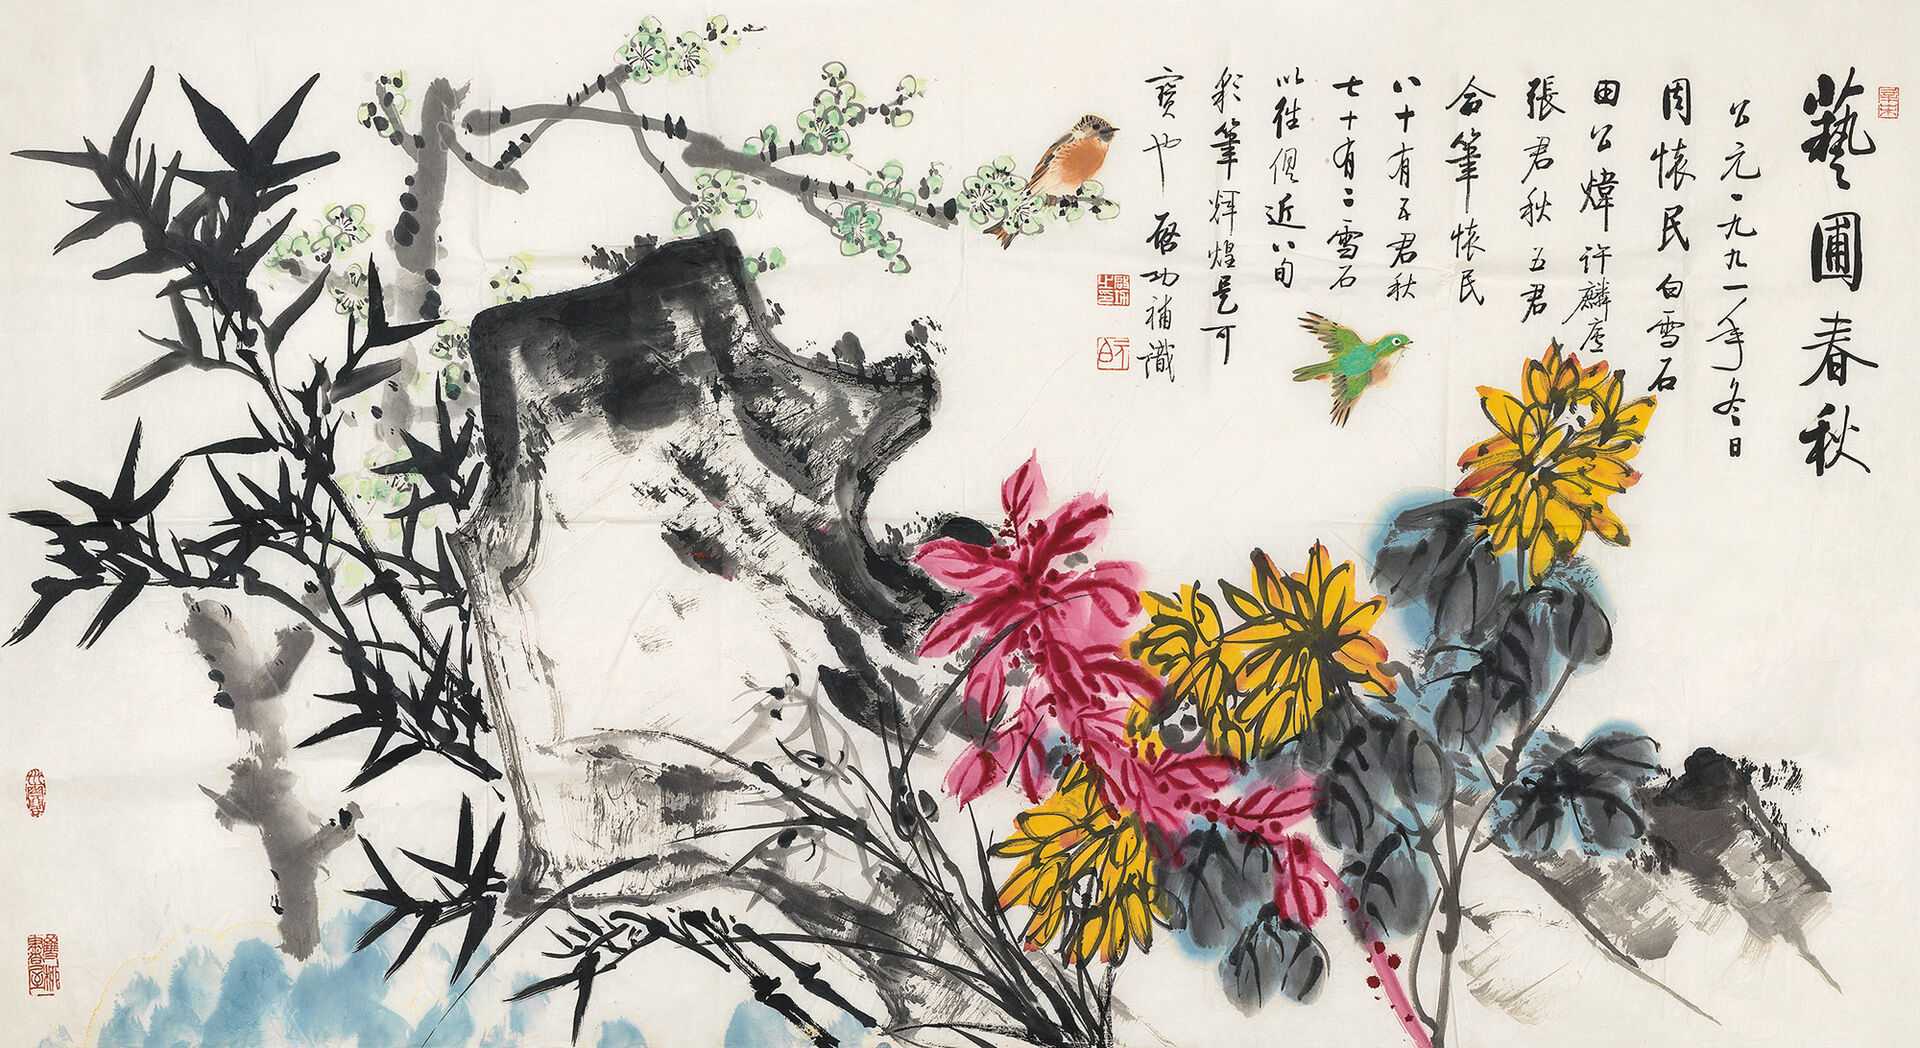 藝圃春秋
公元一九九一年冬日
周懷民白雪石
田公煒許麟廬
張君秋五君
合筆懷民
八十有五君秋
七十有二雪石
以往俱近八旬
彩筆輝煌是可
寶也啓功補識